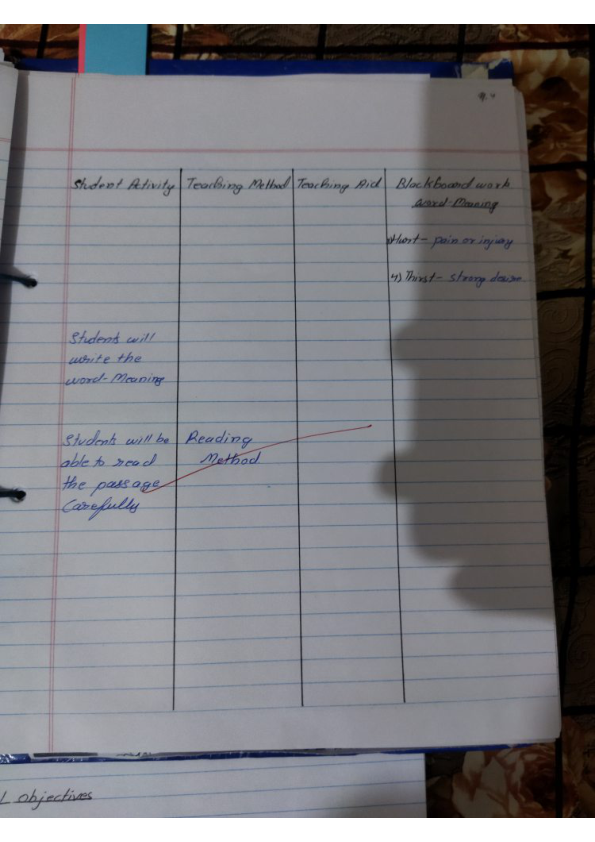 Student Activity Teaching Method Teaching Aid Blackboard work
Word-Meaning
Hurt - pain or injury
4) Thirst - strong desire
Students will
write the
word-Meaning
Students will be Reading
able to read Method
the passage
Carefully
L objectives